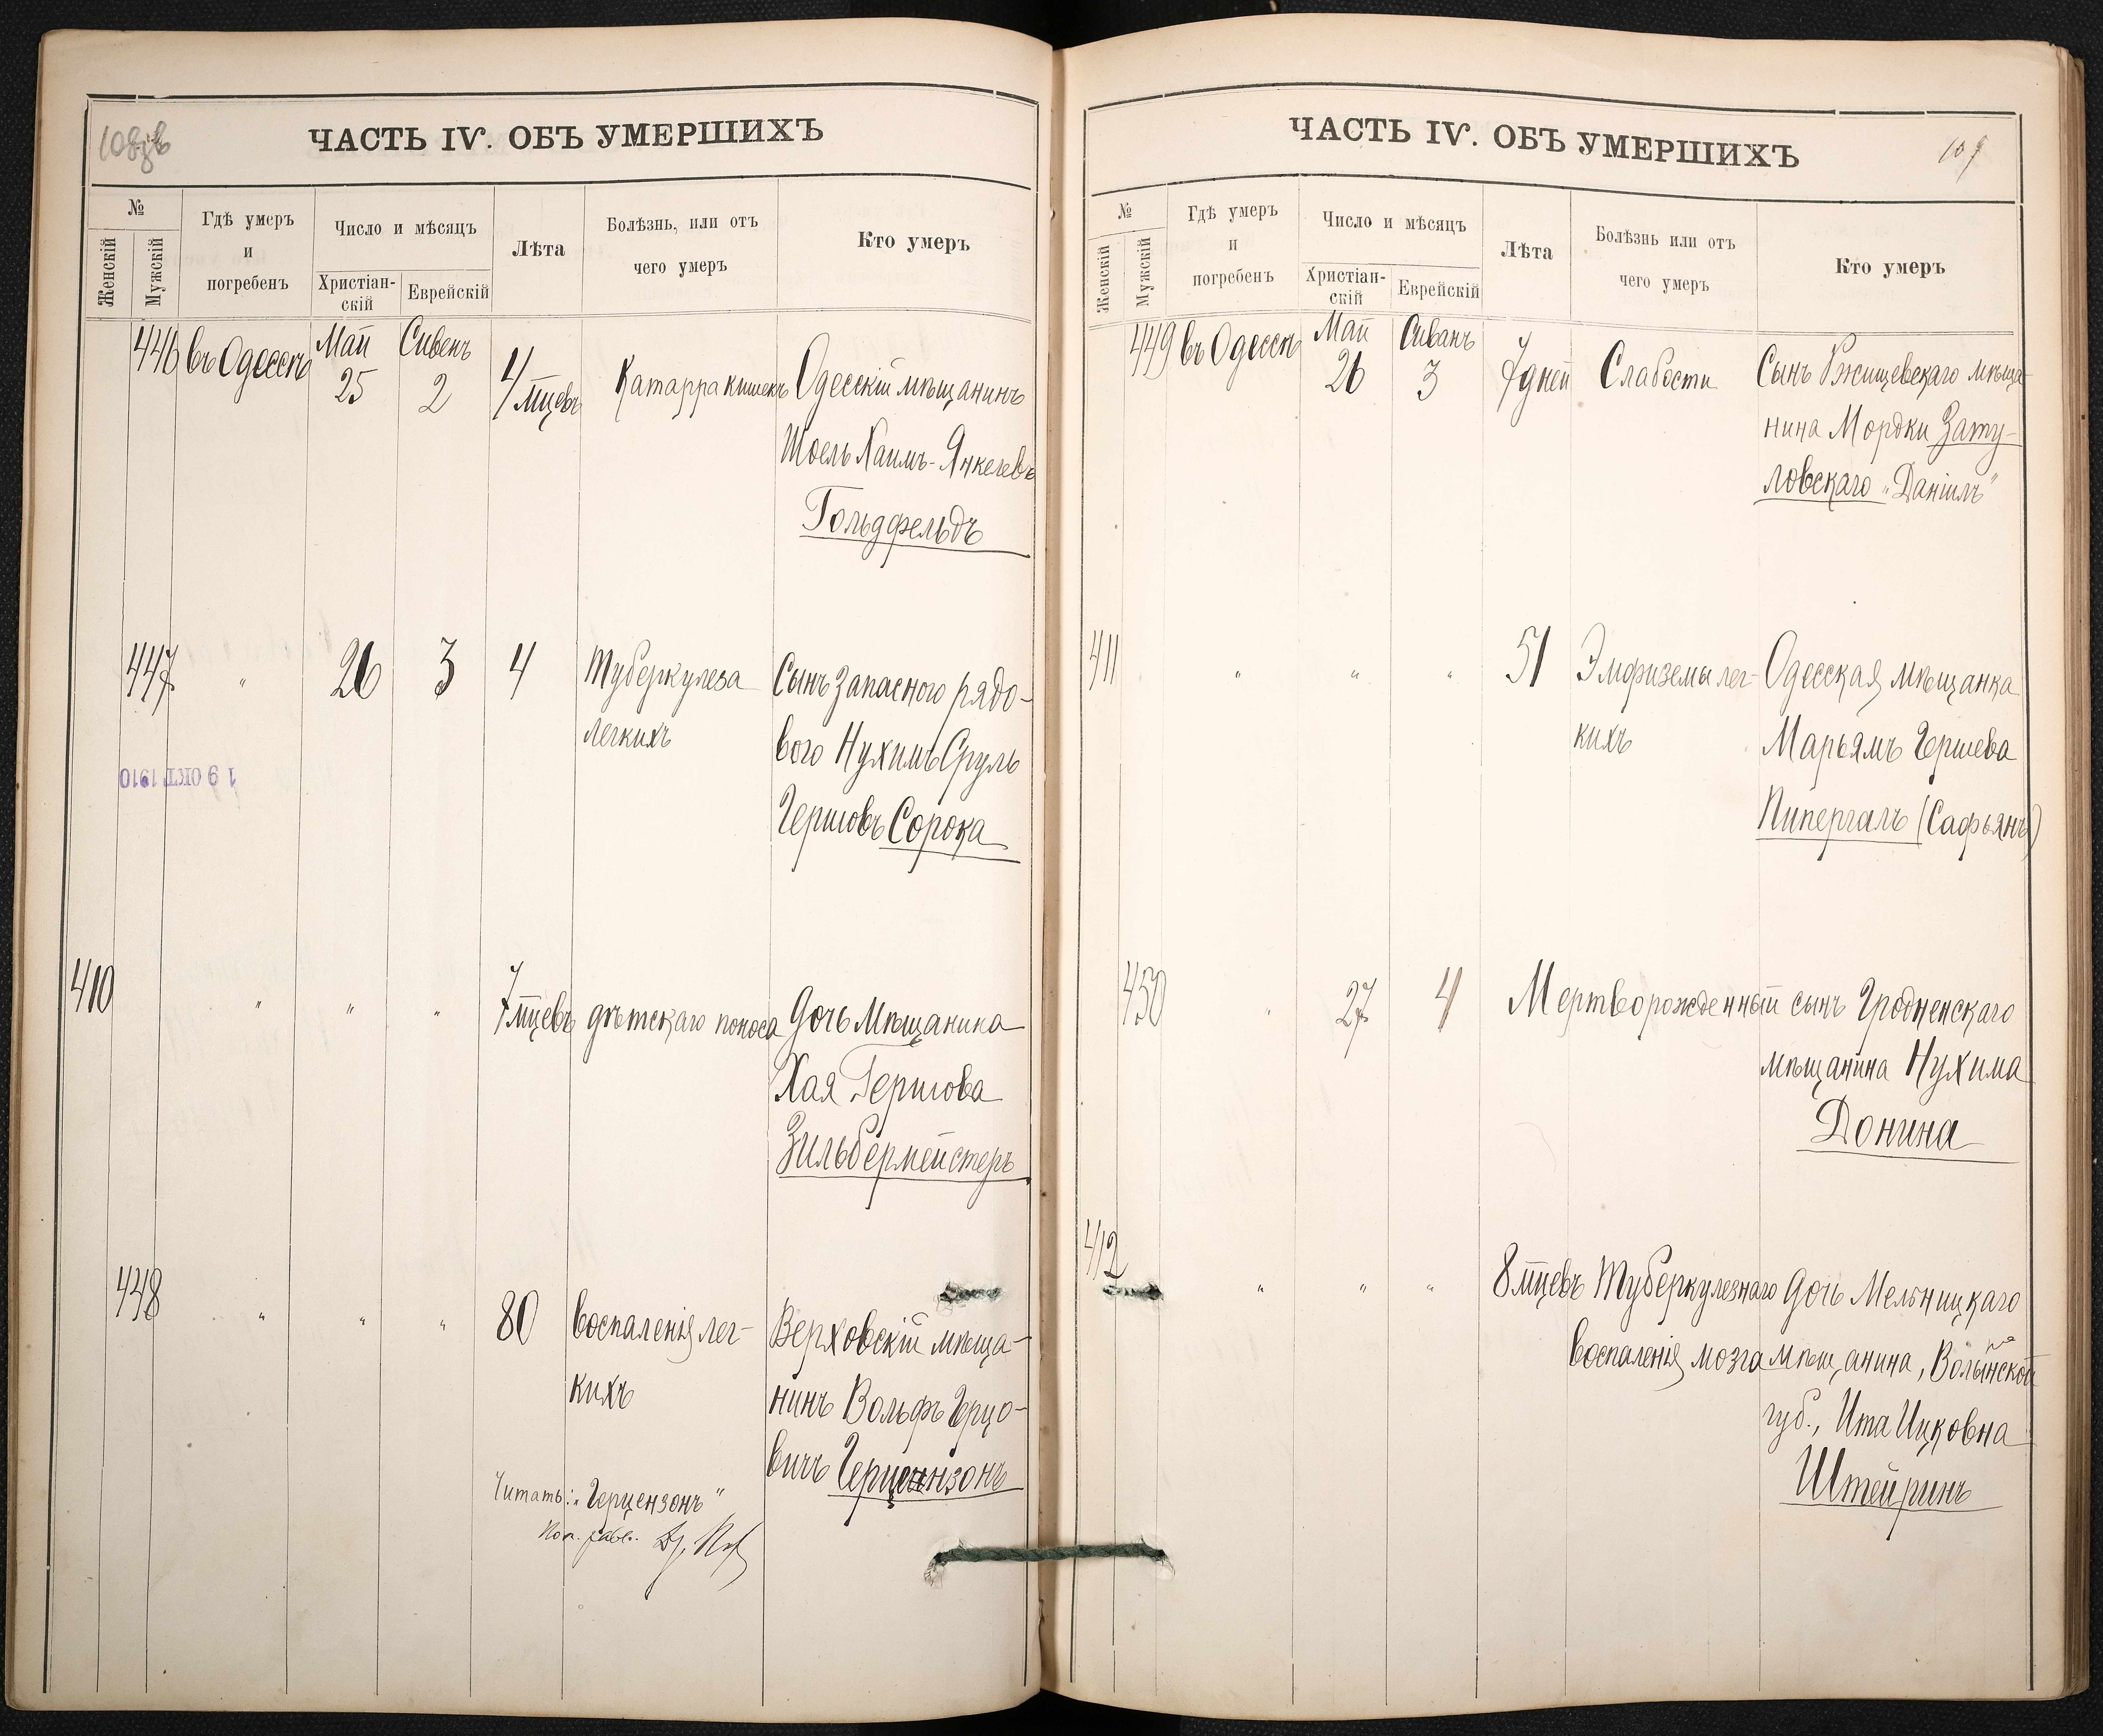 108
ЧАСТЬ IV. ОБЪ УМЕРШИХЪ
№
Женскій
Мужскій
Гдѣ умеръ
и
погребенъ
Число и мѣсяцъ
Христіан-
скій
Еврейскій
Лѣта
Болѣзнь, или отъ
чего умеръ
Кто умеръ
446 въ Одессѣ Май 25 Сивенъ 2 4 мцевъ Катарра кишекъ Одесскій мѣщанинъ
Шоель Хаимъ-Янкелевъ
Гольдфельдъ
447 " 26 3 4 Туберкулеза Сынъ запасного рядо-
легкихъ вого Нухимъ Сруль
Гершовъ Сорока
19 ОКТ 1910
410 " " " 7 мцевъ дѣтскаго поноса Дочь Мѣщанина
Хая Гершова
Зильбермейстеръ
448 " " " 80 Воспаленія лег- Верховскій мѣща-
кихъ нинъ Вольфъ Герцо-
вичъ
Читать: "Герцензонъ"
109
ЧАСТЬ IV. ОБЪ УМЕРШИХЪ
№
Женскій
Мужскій
Гдѣ умеръ
и
погребенъ
Число и мѣсяцъ
Христіан-
скій
Еврейскій
Лѣта
Болѣзнь или отъ
чего умеръ
Кто умеръ
449 въ Одессѣ Май 26 Сиванъ 3 7 дней Слабости Сынъ Ржищевскаго мѣща-
нина Мордки Зату-
ловскаго "Даніилъ"
411 " " " 51 Эмфиземы лег- Одесская мѣщанка
кихъ Марьямъ Гершева
Пипергалъ (Сафьянъ)
450 " 27 4 Мертворожденный сынъ Гродненскаго
мѣщанина Нухима
Донина
412 " " " 8 мцевъ Туберкулезнаго Дочь Мельницкаго
воспаленія мозга мѣщанина, Волынской
губ., Ита Ицковна
Штейринъ